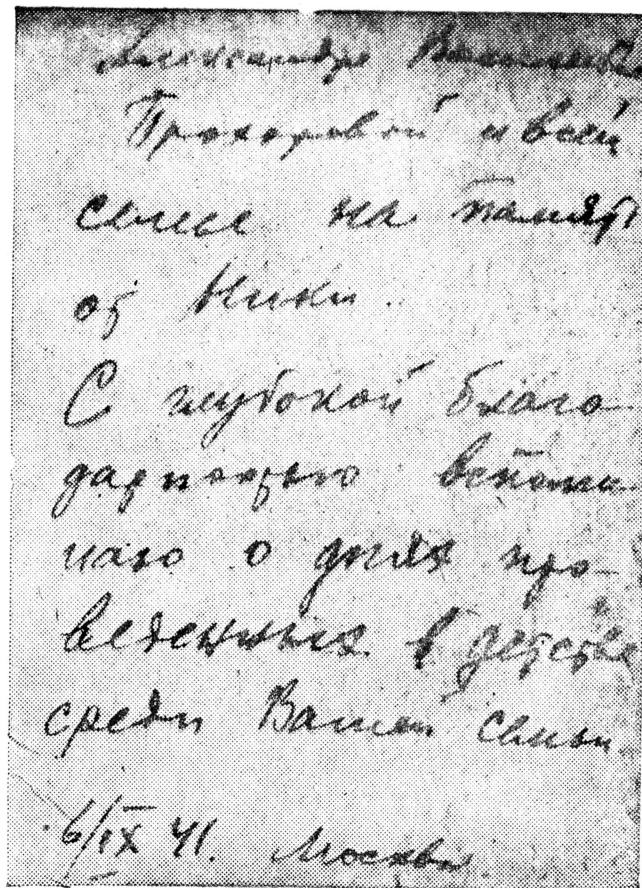 Александре Васильевне
Прохоровой и всей
семье на память
от Ники.
С глубокой благо-
дарностью вспоми-
наю о днях про-
веденных в детстве
среди Вашей семьи
6/IX 41. Москва